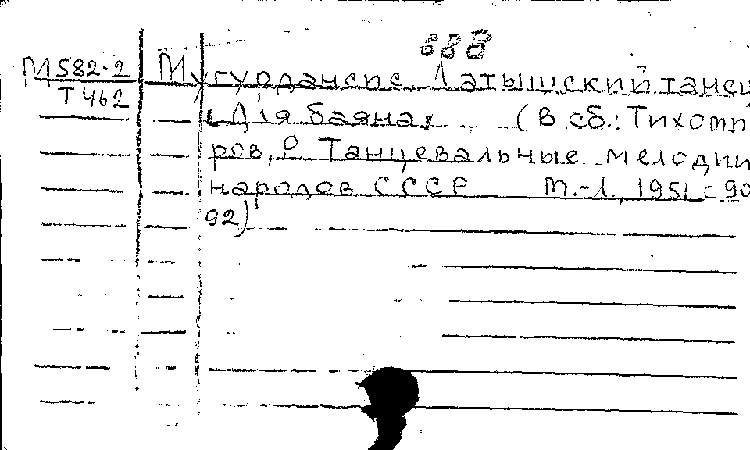 688
М 582-2 Мугурданспс. Латышский танец
Т 462 [Для баяна]. (В сб.: Тихоми
ров, Танцевальные мелодии
народов СССР М.-Л., 1951 с 90
92)